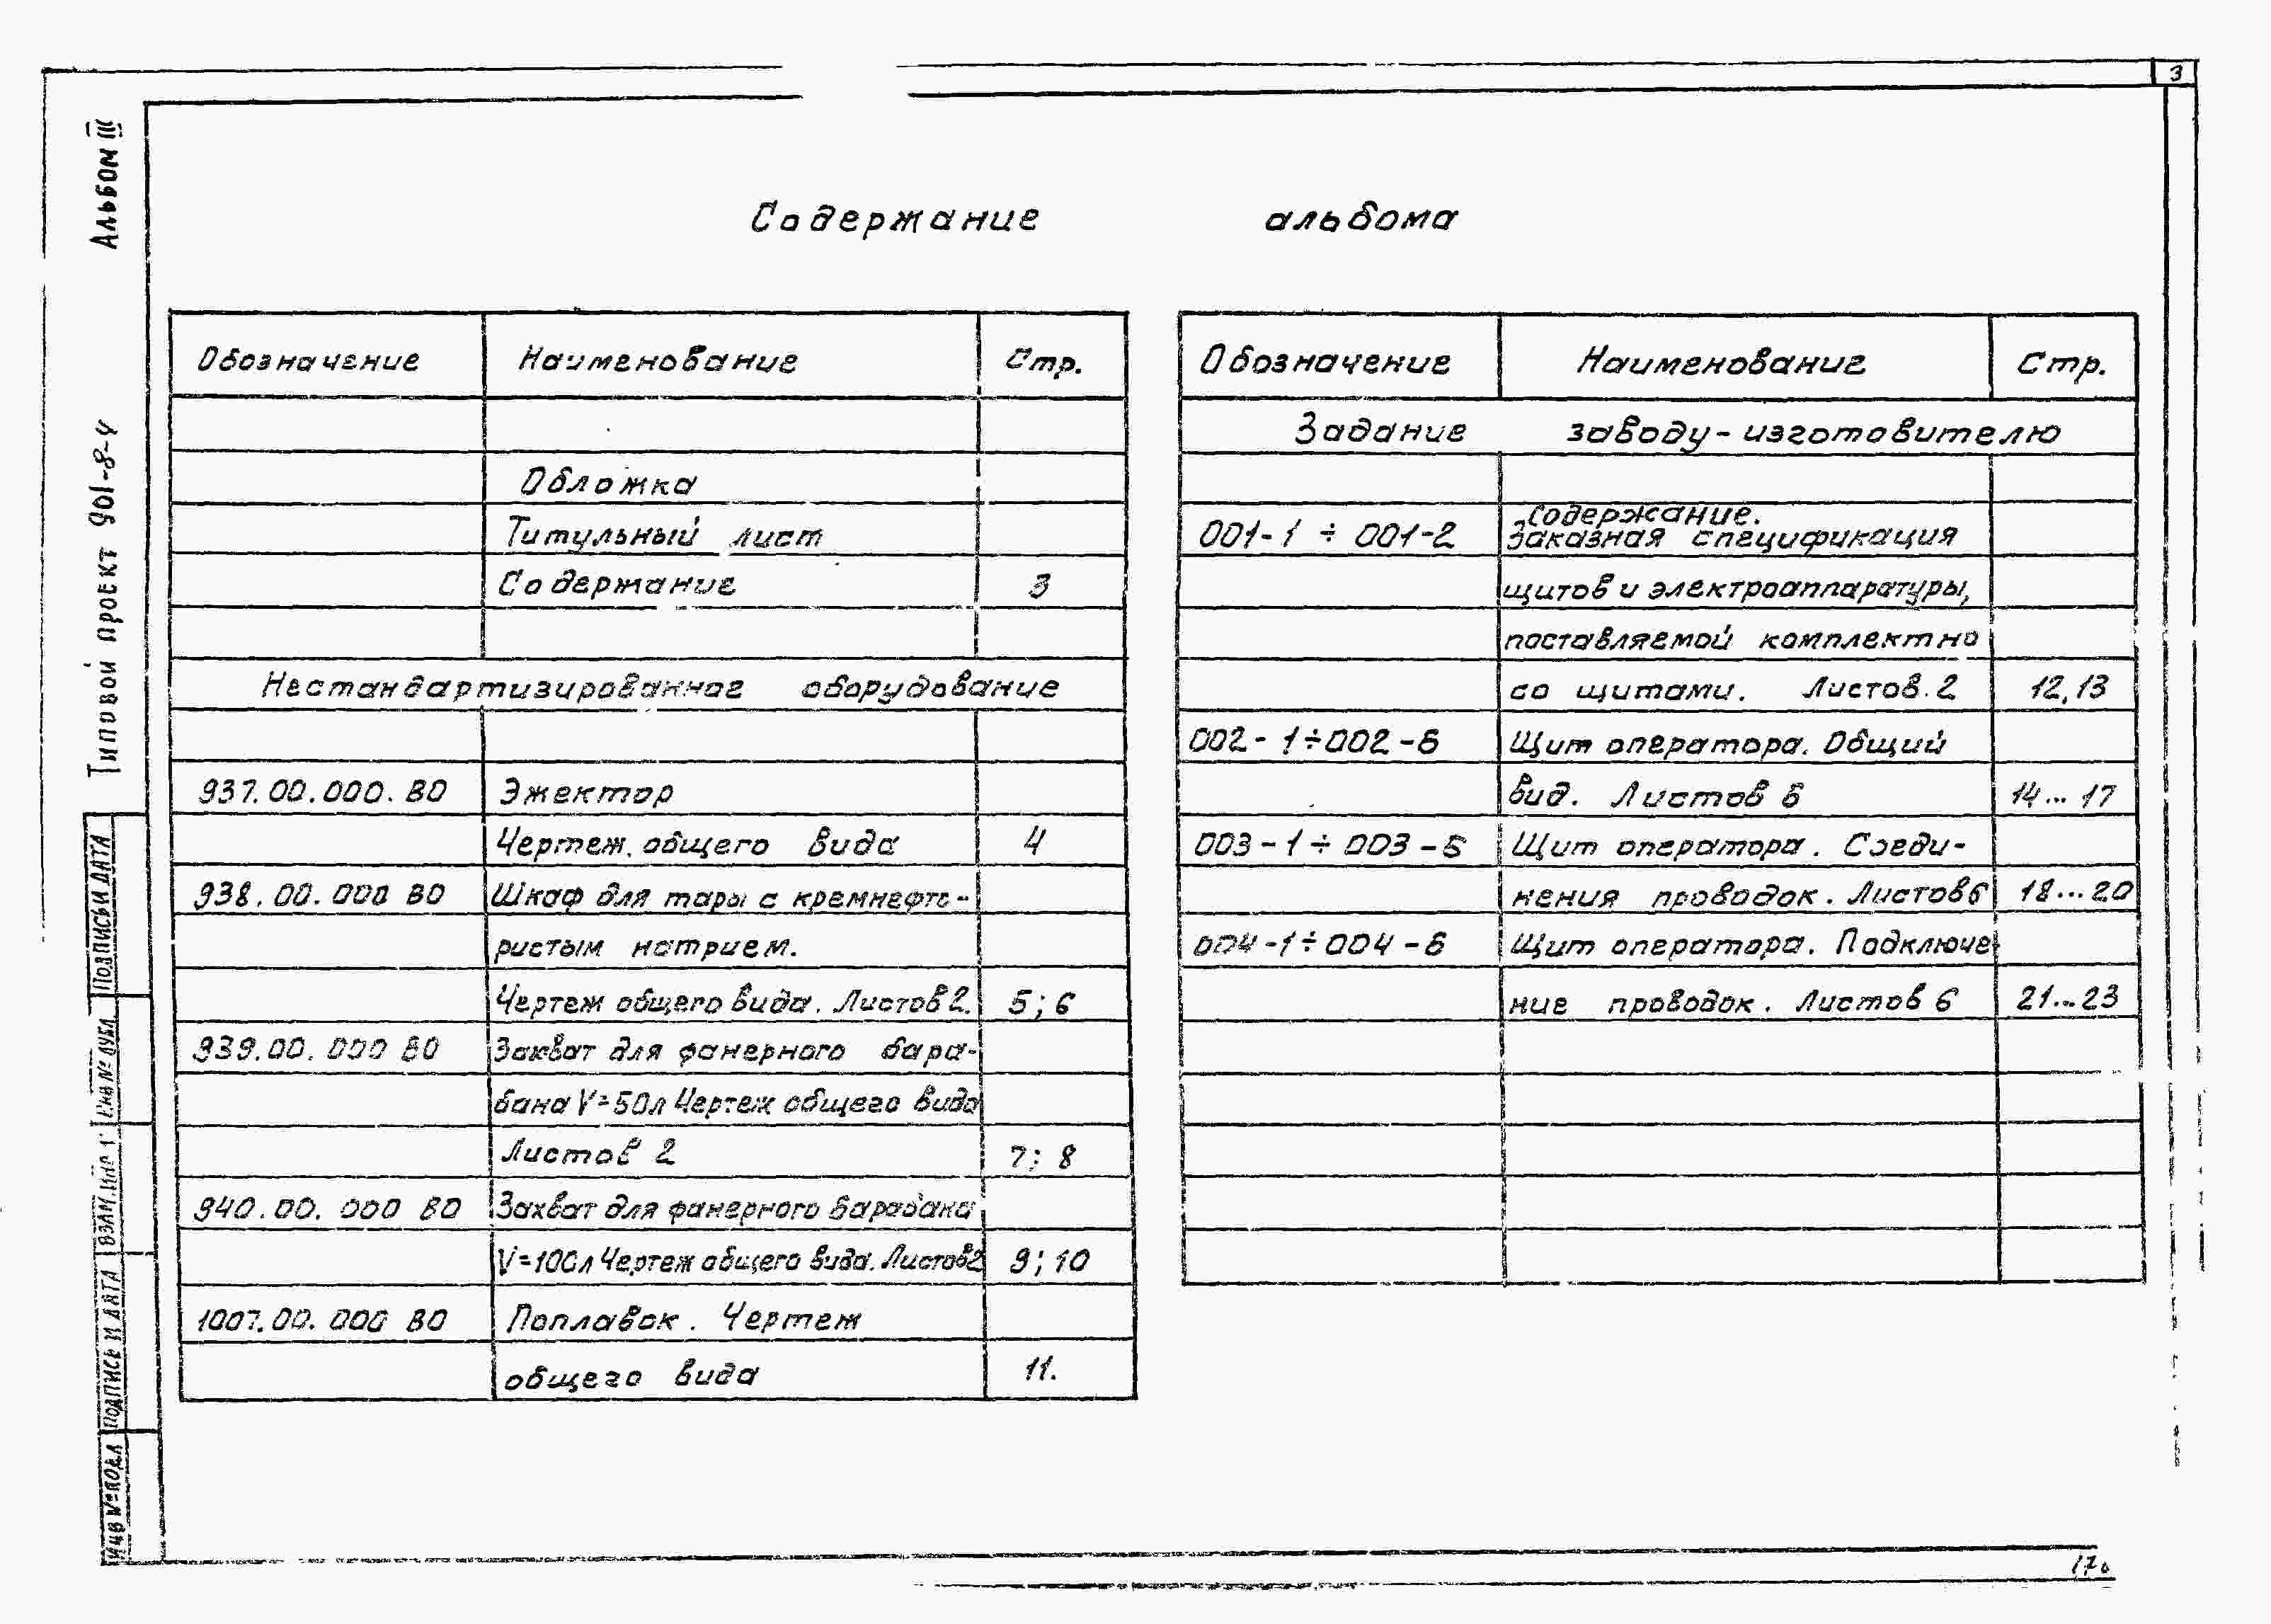 3
Альбом III
Типовой проект 901-8-4
Содержание альбома
Обозначение Наименование Стр.
Обложка
Титульный лист
Содержание 3
Нестандартизированное оборудование
937.00.000.ВО Эжектор
Чертеж общего вида 4
938.00.000 ВО Шкаф для тары с кремнефто-
ристым натрием.
Чертеж общего вида. Листов 2. 5; 6
939.00.000 ВО Захват для фанерного бара-
бана V=50л Чертеж общего вида
Листов 2 7; 8
940.00.000 ВО Захват для фанерного барабана
V=100л Чертеж общего вида. Листов 2 9; 10
1007.00.000 ВО Поплавок. Чертеж
общего вида 11.
Обозначение Наименование Стр.
Задание заводу-изготовителю
Содержание.
001-1 ÷ 001-2 Заказная спецификация
щитов и электроаппаратуры,
поставляемой комплектно
со щитами. Листов. 2 12,13
002-1÷002-6 Щит оператора. Общий
вид. Листов 6 14... 17
003-1÷003-6 Щит оператора. Соеди-
нения проводок. Листов 6 18...20
004-1÷004-6 Щит оператора. Подключе-
ние проводок. Листов 6 21...23
Подпись и дата
Инв № дубл
Взам. инв
Подпись и дата
Инв № подл